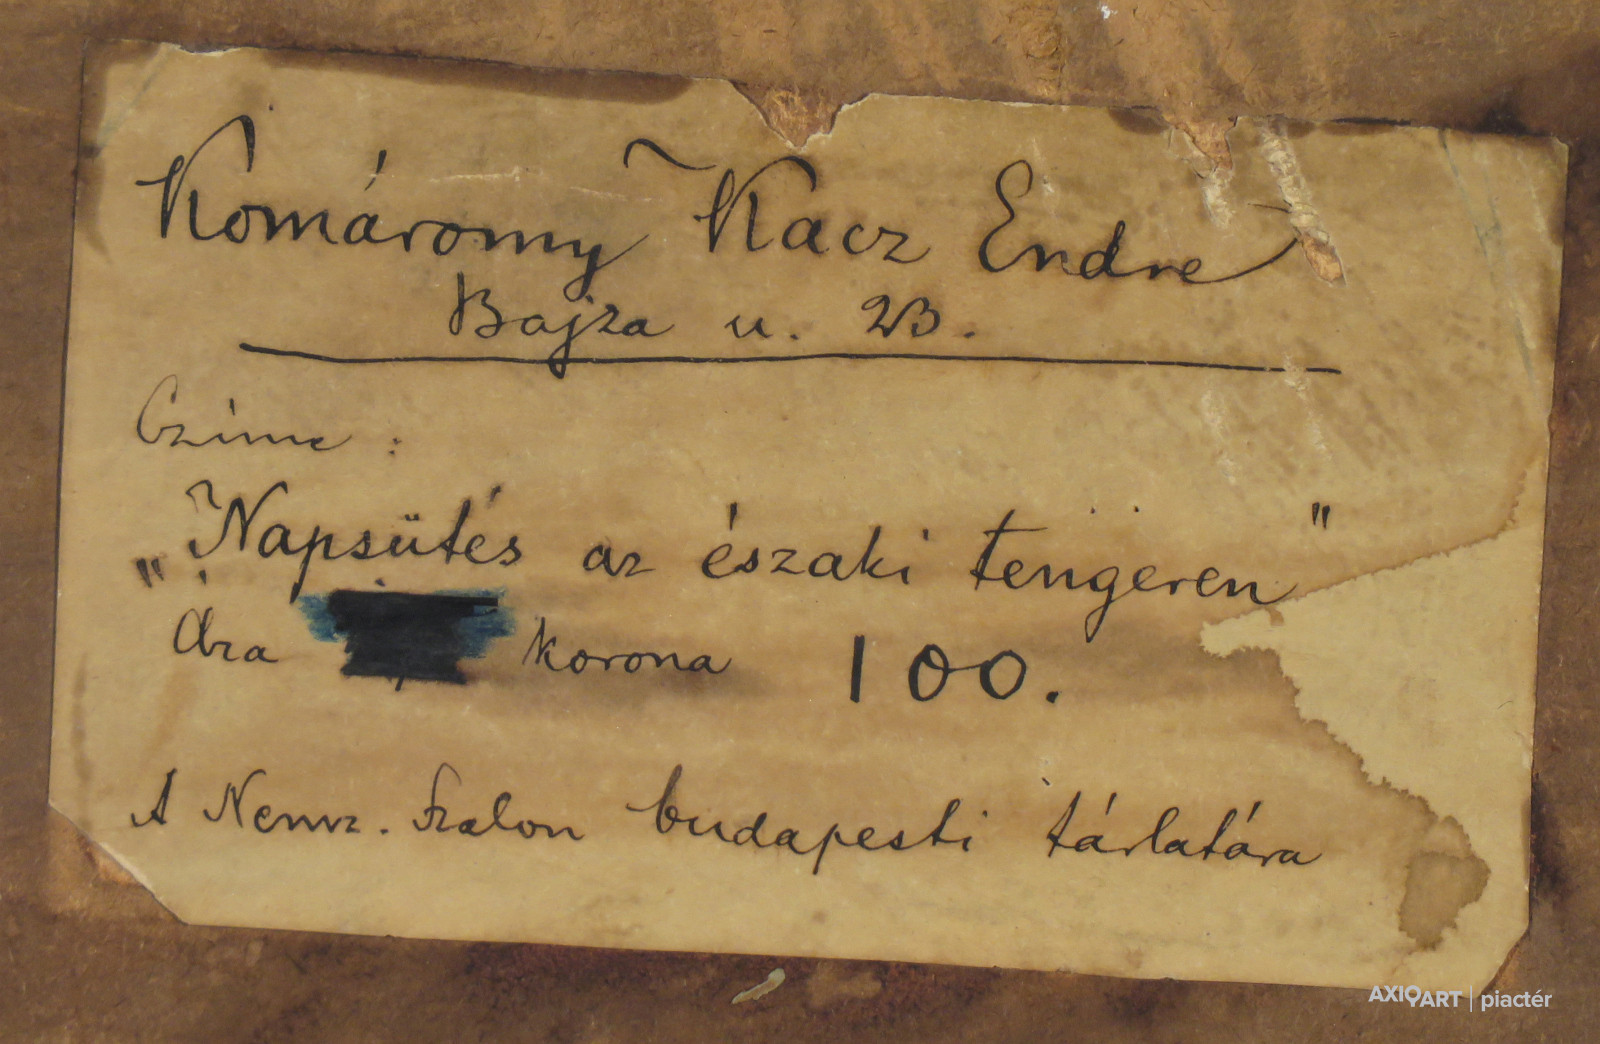 Komáromy Kacz Endre
Bajza u. 23.
Czíme :
„Napsütés az északi tengeren"
Ára korona 100.
A Nemz. Szalon budapesti tárlatára
AXIOART | piactér